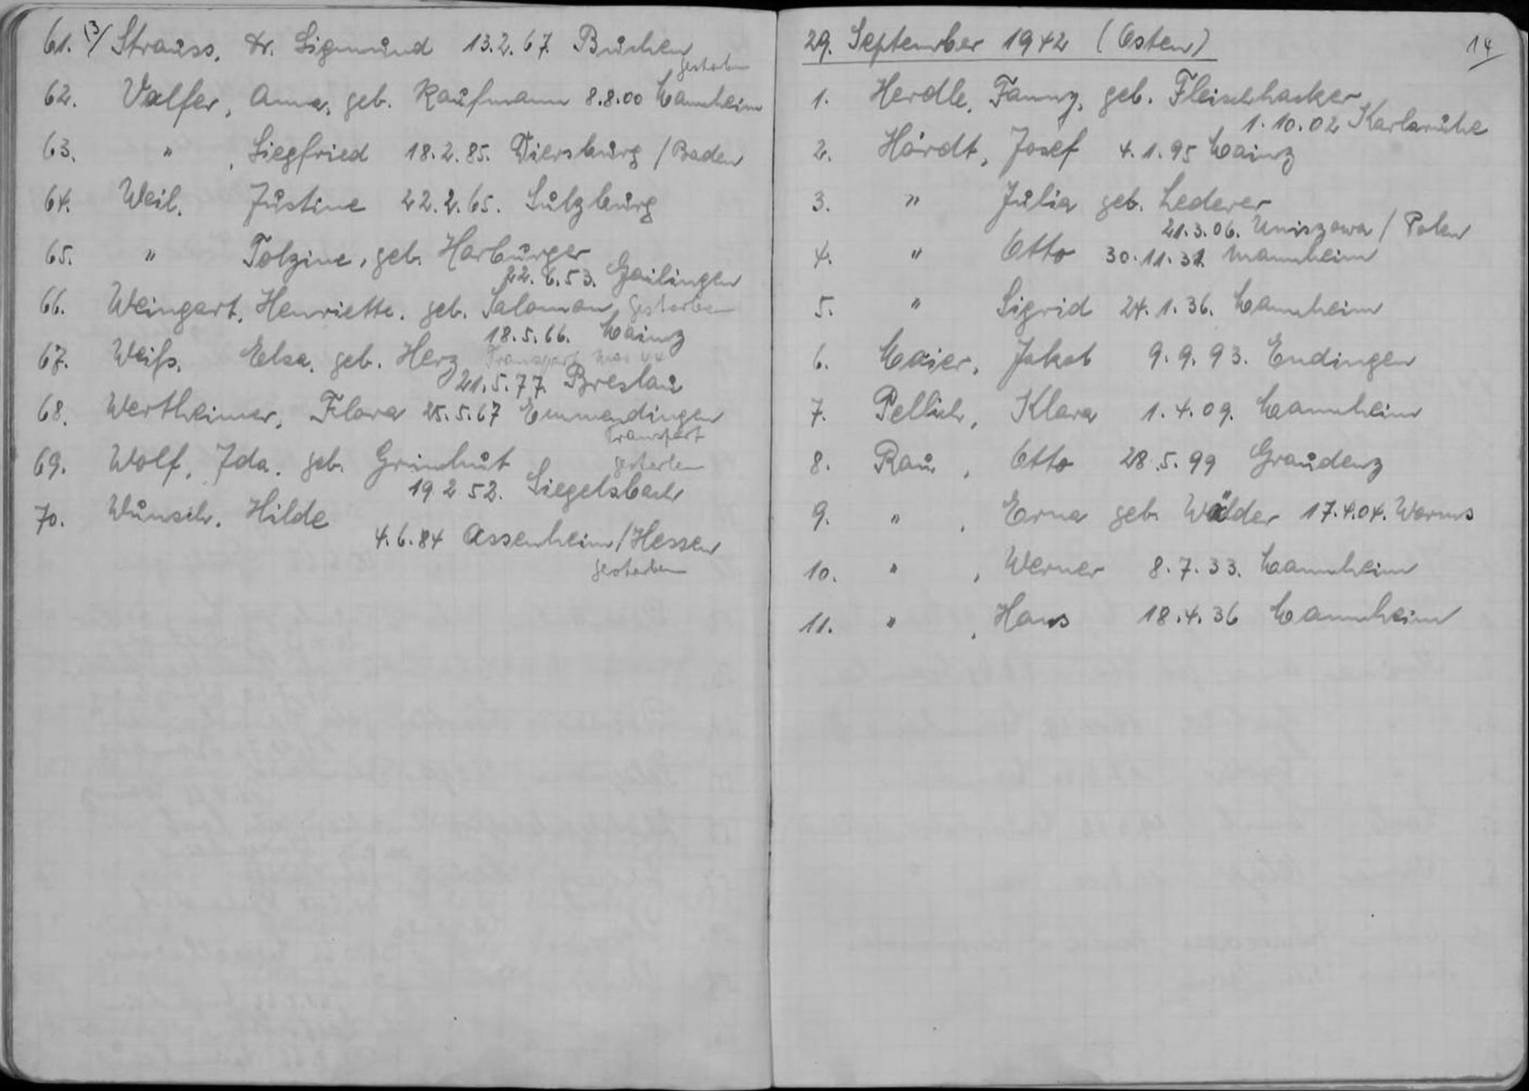 61. (3/ Strauss, Dr. Sigmund 13.2.67. Buchen
gestorben
62. Valfer, Anna, geb. Kaufmann 8.8.00 Mannheim
63. " , Siegfried 18.2.85. Diersburg / Baden
64. Weil, Justine 22.2.65. Sulzburg
65. " Tolzine, geb. Harburger
22.6.53. Gailingen
66. Weingart, Henriette, geb. Salomon gestorben
18.5.66. Mainz
67. Weiß, Elsa, geb. Herz Transport
21.5.77. Breslau
68. Wertheimer, Flora 25.5.67 Emmendingen
Transport
69. Wolf, Ida, geb. Grünhut gestorben
19 2 52. Siegelsbach
70. Wunsch, Hilde
4.6.84 Assenheim/Hessen
gestorben
29. September 1942 (Osten) 14
1. Herdle, Fanny, geb. Fleischhacker
1.10.02 Karlsruhe
2. Hördt, Josef 4.1.95 Mainz
3. " Julia geb. Lederer
21.3.06. Uniszowa / Polen
4. " Otto 30.11.31 Mannheim
5. " Sigrid 24.1.36. Mannheim
6. Maier, Jakob 9.9.93. Endingen
7. Pellich, Klara 1.4.09. Mannheim
8. Rau , Otto 28.5.99 Graudenz
9. " , Erna geb. Wälder 17.4.04. Worms
10. " , Werner 8.7.33. Mannheim
11. " , Hans 18.4.36 Mannheim